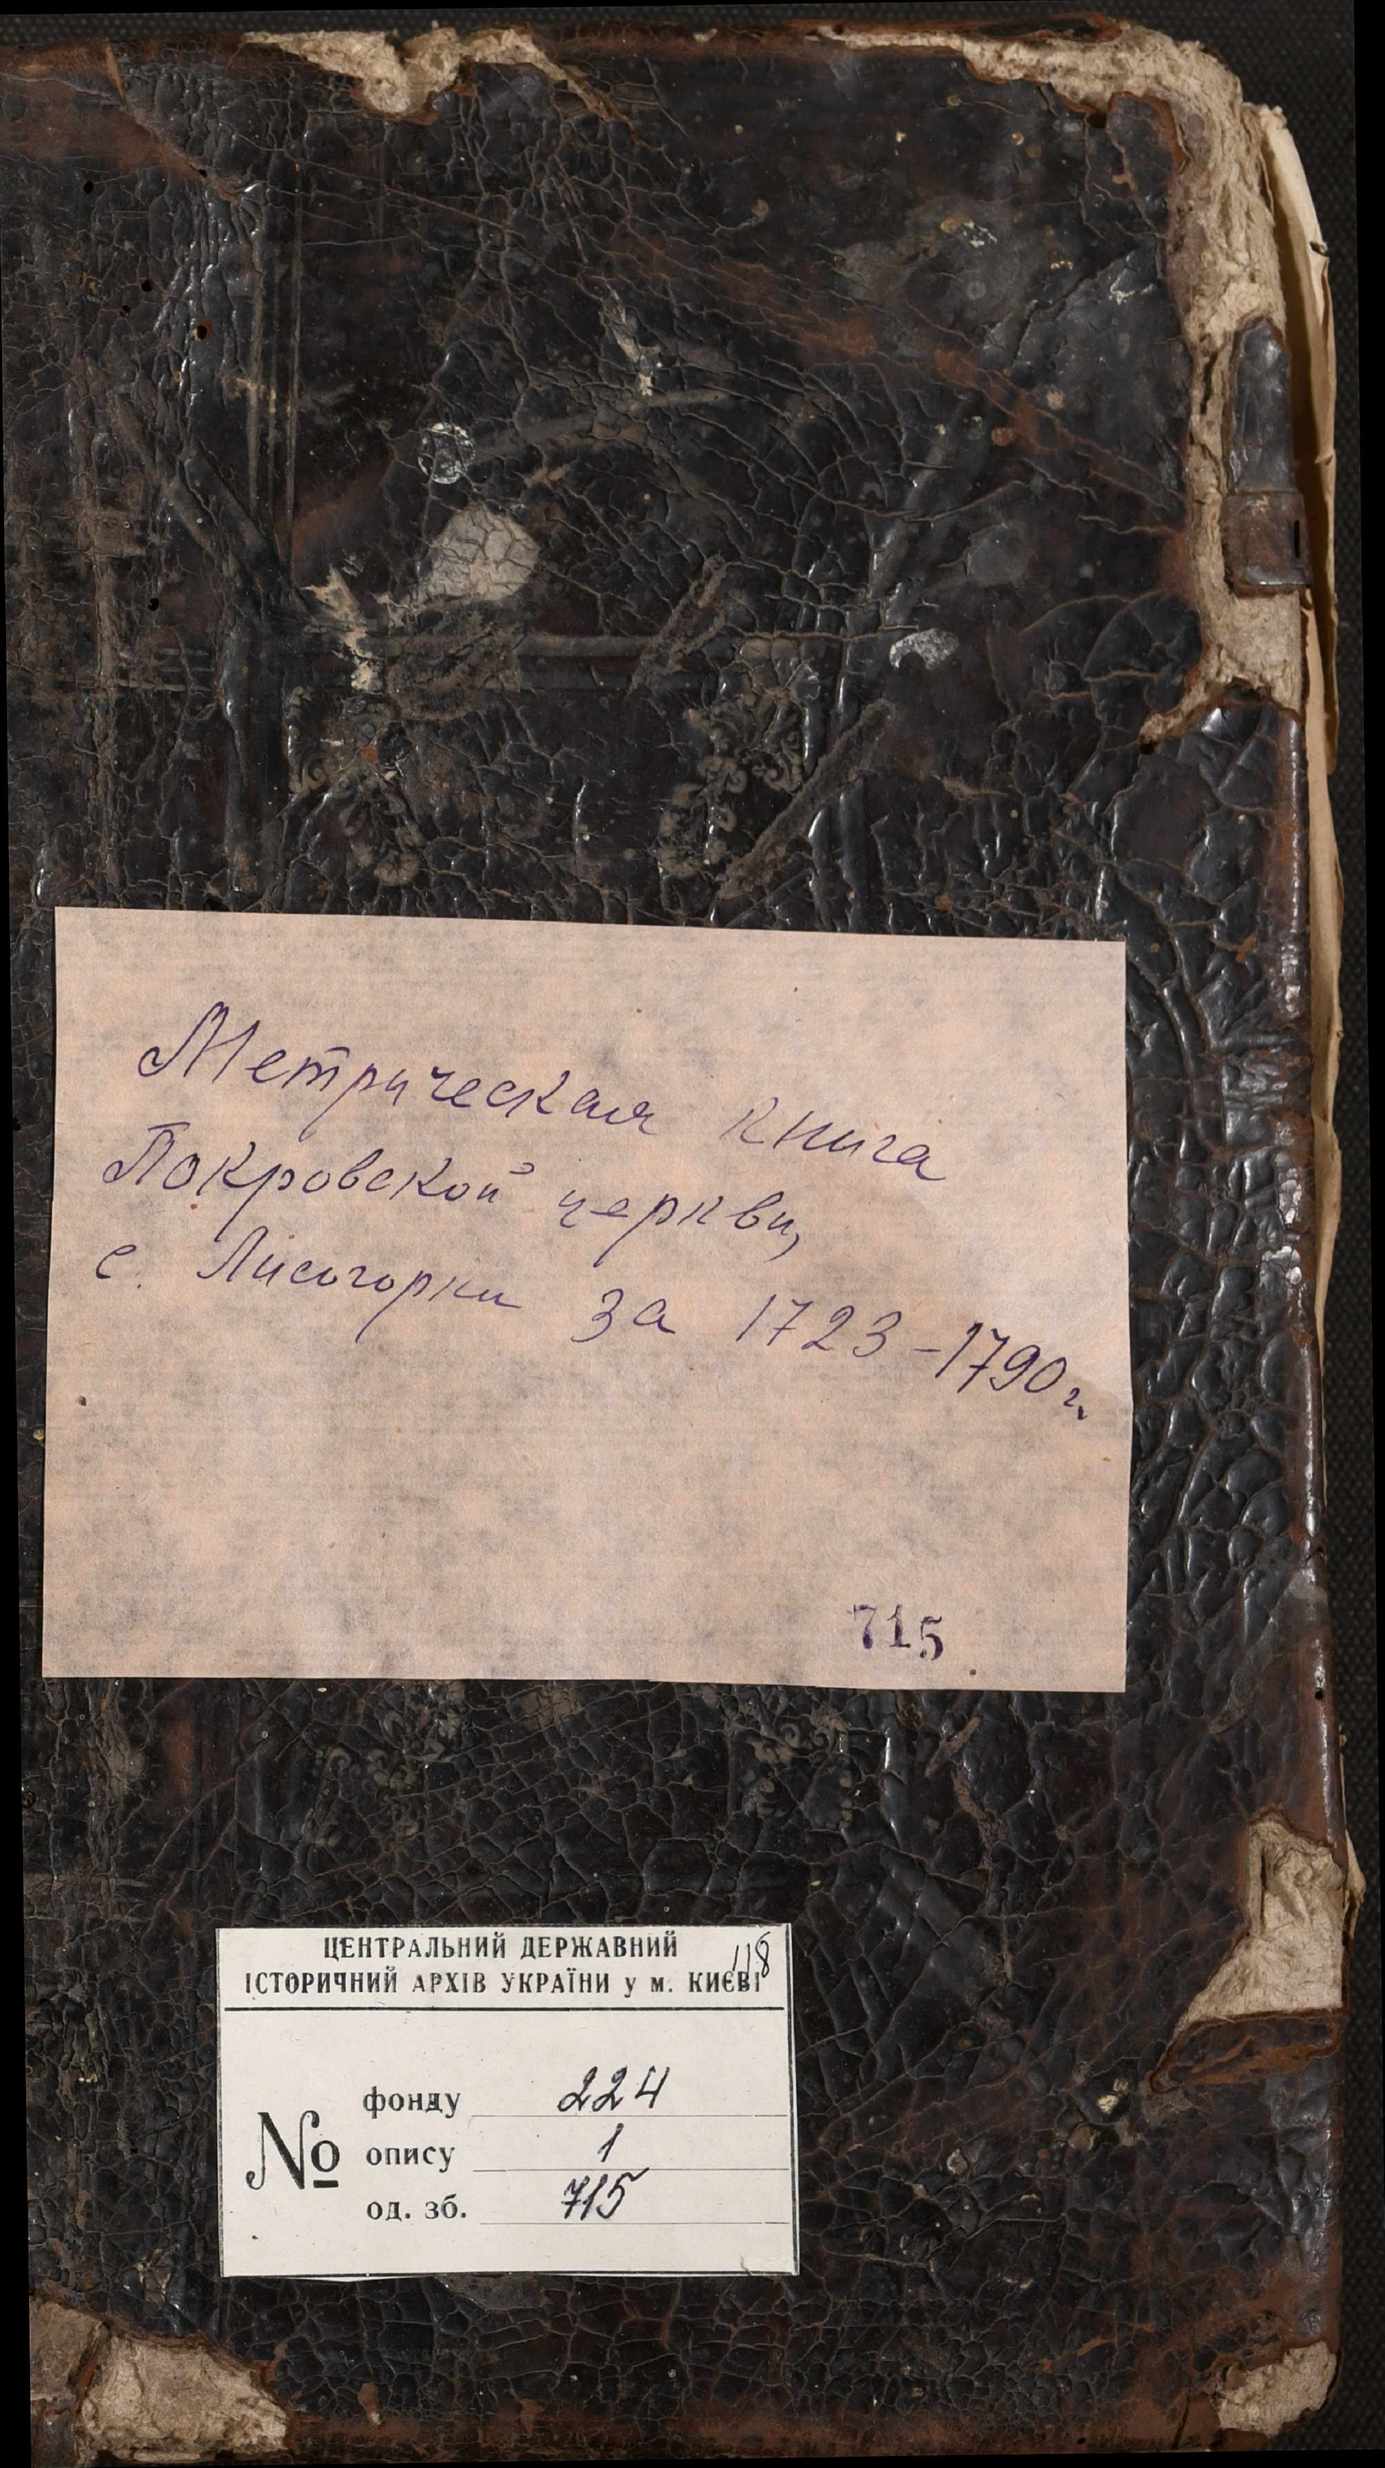 Метрическая книга
Покровской церкви,
с. Лисогорки за 1723-1790 г.
715
118
ЦЕНТРАЛЬНИЙ ДЕРЖАВНИЙ
ІСТОРИЧНИЙ АРХІВ УКРАЇНИ у м. КИЄВІ
№
фонду 224
опису 1
од. зб. 715